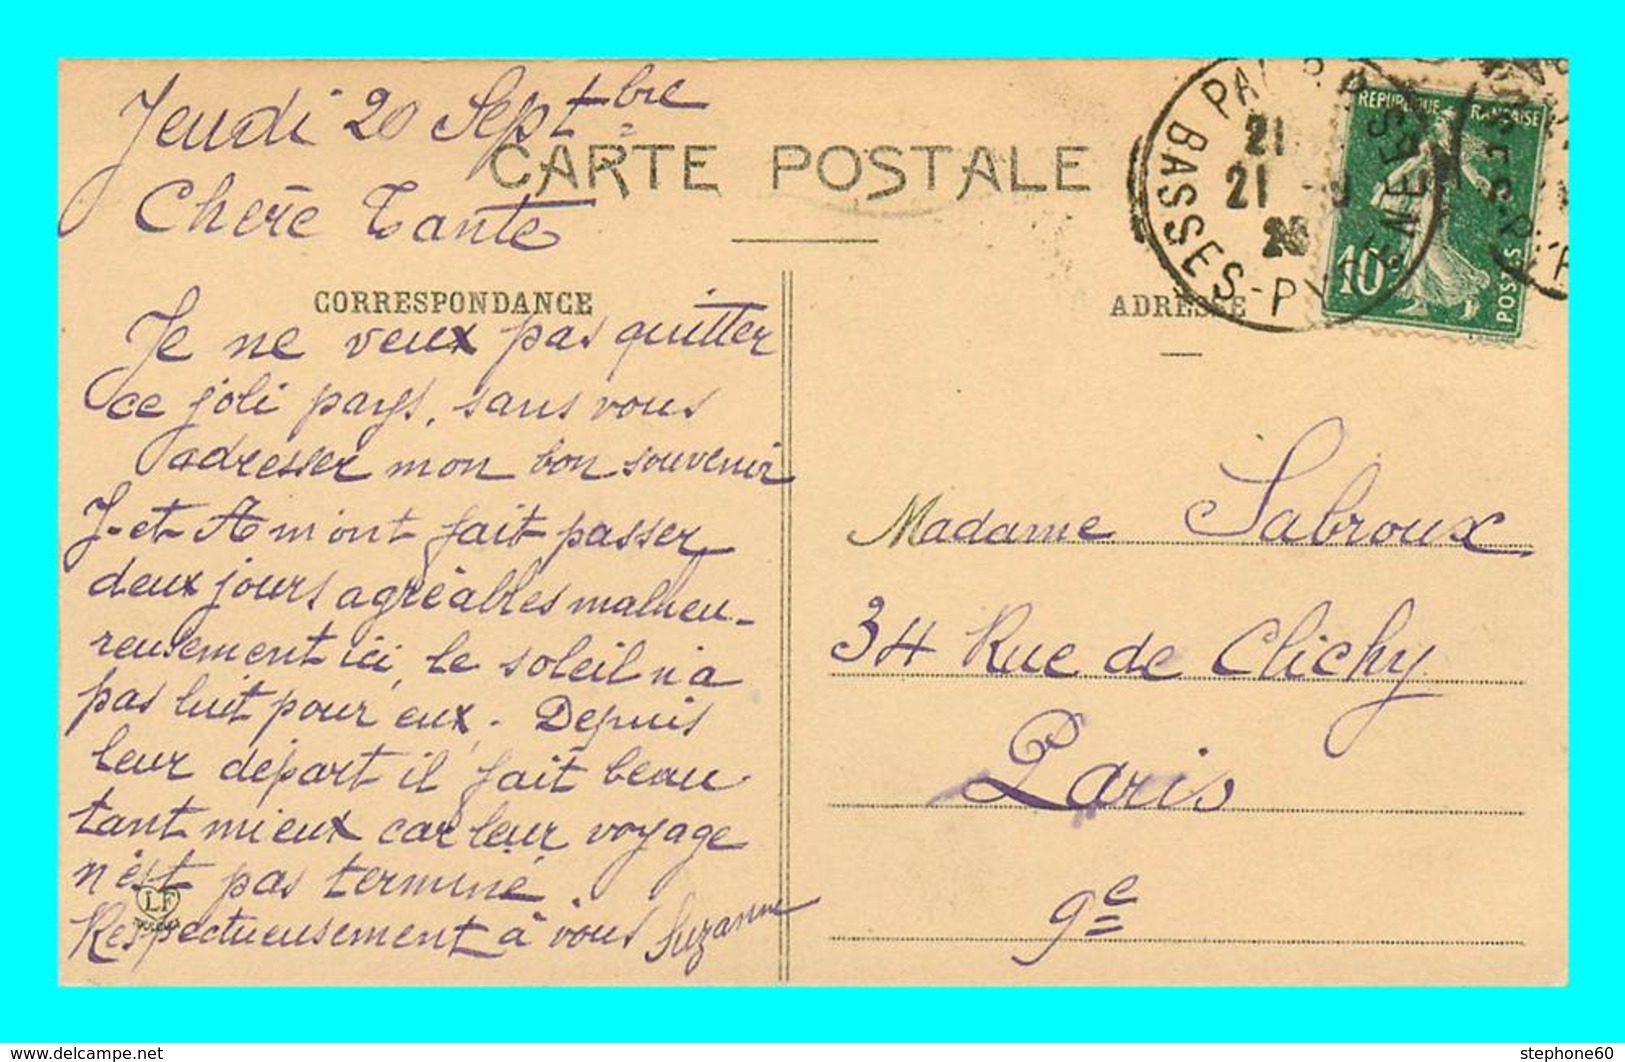 Jeudi 20 Septbre
CARTE POSTALE
Chère Tante
CORRESPONDANCE
Je ne veux pas quitter
ce joli pays, sans vous
adresser mon bon souvenir
J-et-A m'ont fait passer
deux jours agréables malheu-
reusement ici, le soleil n'a
pas luit pour eux. Depuis
leur départ il fait beau
tant mieux car leur voyage
n'est pas terminé.
LF
Respectueusement à vous Suzanne
BASSES-PYRENEES
21
21 -9
REPUBLIQUE FRANÇAISE
10c
POSTES
ADRESSE
Madame Sabroux
34 Rue de Clichy
Paris
9e
delcampe.net
stephone60